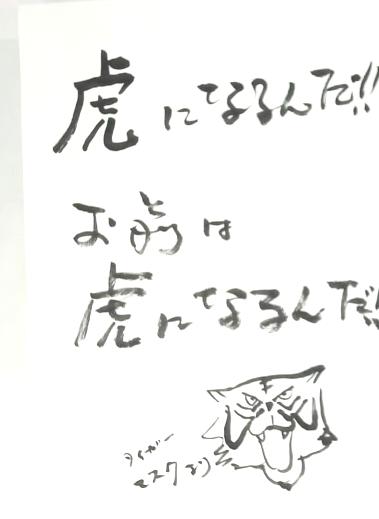 虎になるんだ!!
お前は
虎になるんだ!!
タイガー
マスクより